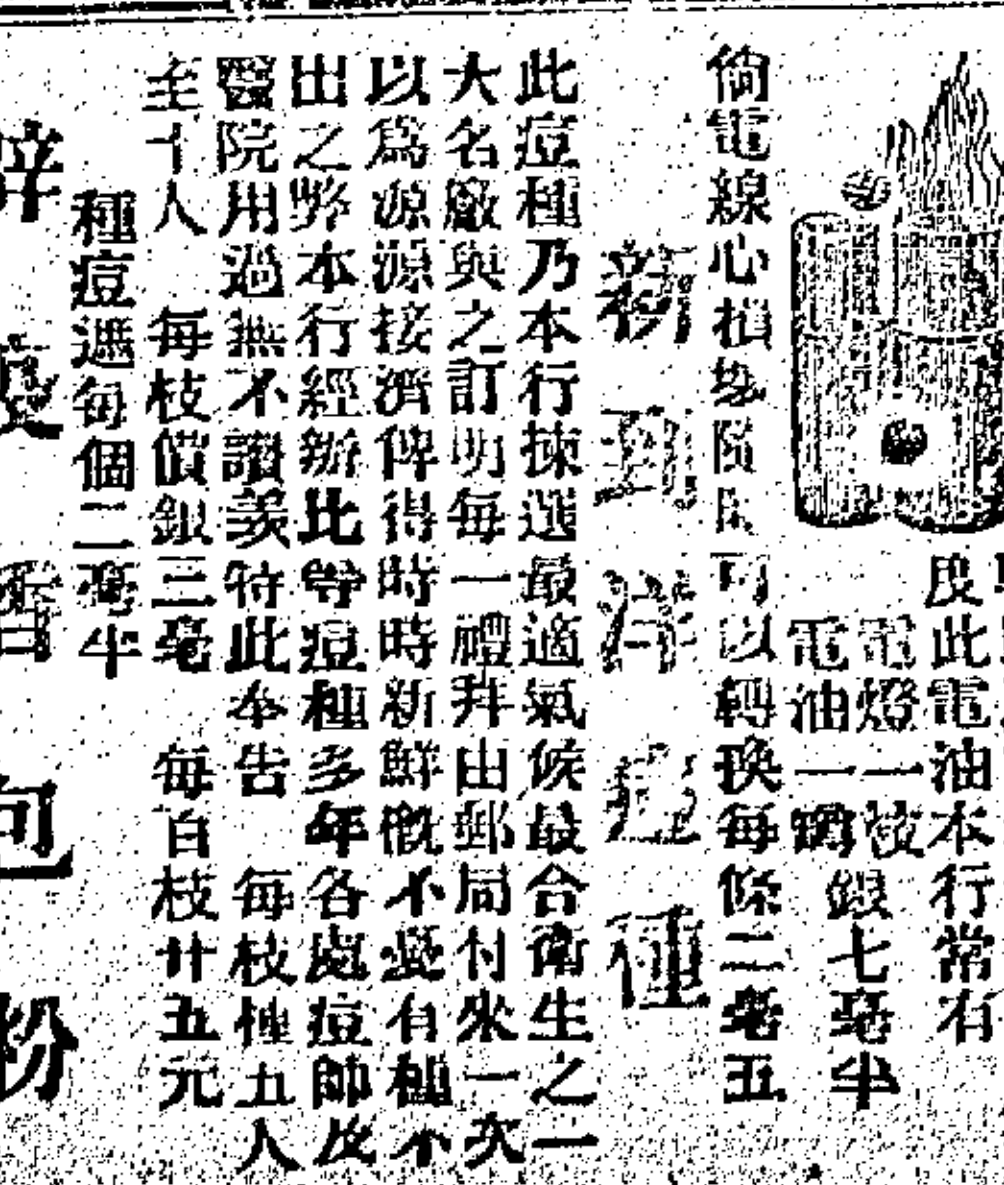 度此電油本行常有
電燈一枝
電油一
銀七毫半
倘電線心損壞隨時可以轉換每條二毫五
新到洋痘種
此痘種乃本行揀選最適氣候最合衛生之一
大名廠與之訂明每一禮拜由郵局付來一次
以爲源源接濟俾得時時新鮮概不憂有種不
出之弊本行經辦此等痘種多年各處痘師及
醫院用過無不讚羨特此奉告 每枝種五人
至十人 每枝價銀三毫 每百枝廿五元
種痘遞每個二毫半
包粉